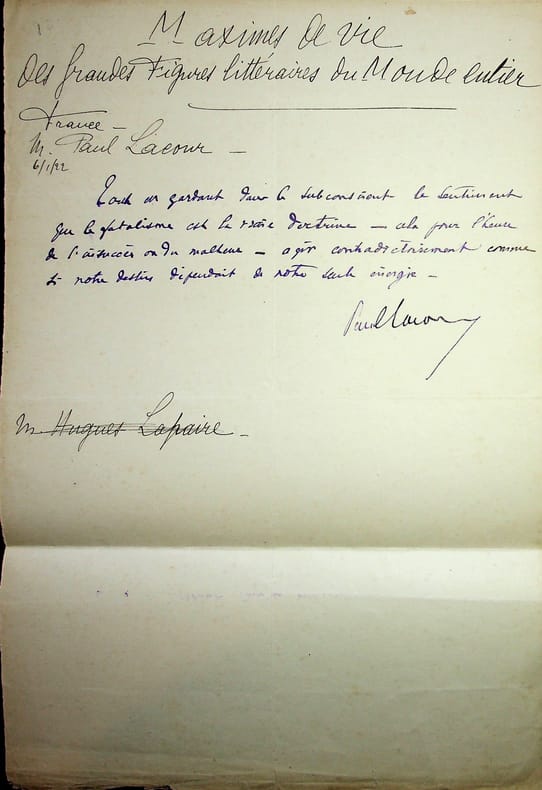 Maximes de vie
des grandes Figures littéraires du Monde entier
France —
M. Paul Lacour —
6/1/22
Tout en gardant dans le subconscient le sentiment
que le fatalisme est la vraie doctrine — cela pour l'heure
de l'insuccès ou du malheur — agir contradictoirement comme
si notre destin dépendait de notre seule énergie —
Paul Lacour
M. Hugues Lapaire —